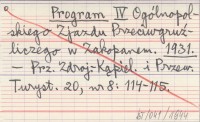 Program IV Ogólnopol-
skiego Zjazdu Przeciwgruź-
liczego w Zakopanem. 1931.
— Prz. Zdroj.-Kąpiel. i Przew.
Turyst. 20, nr 8: 114-115.